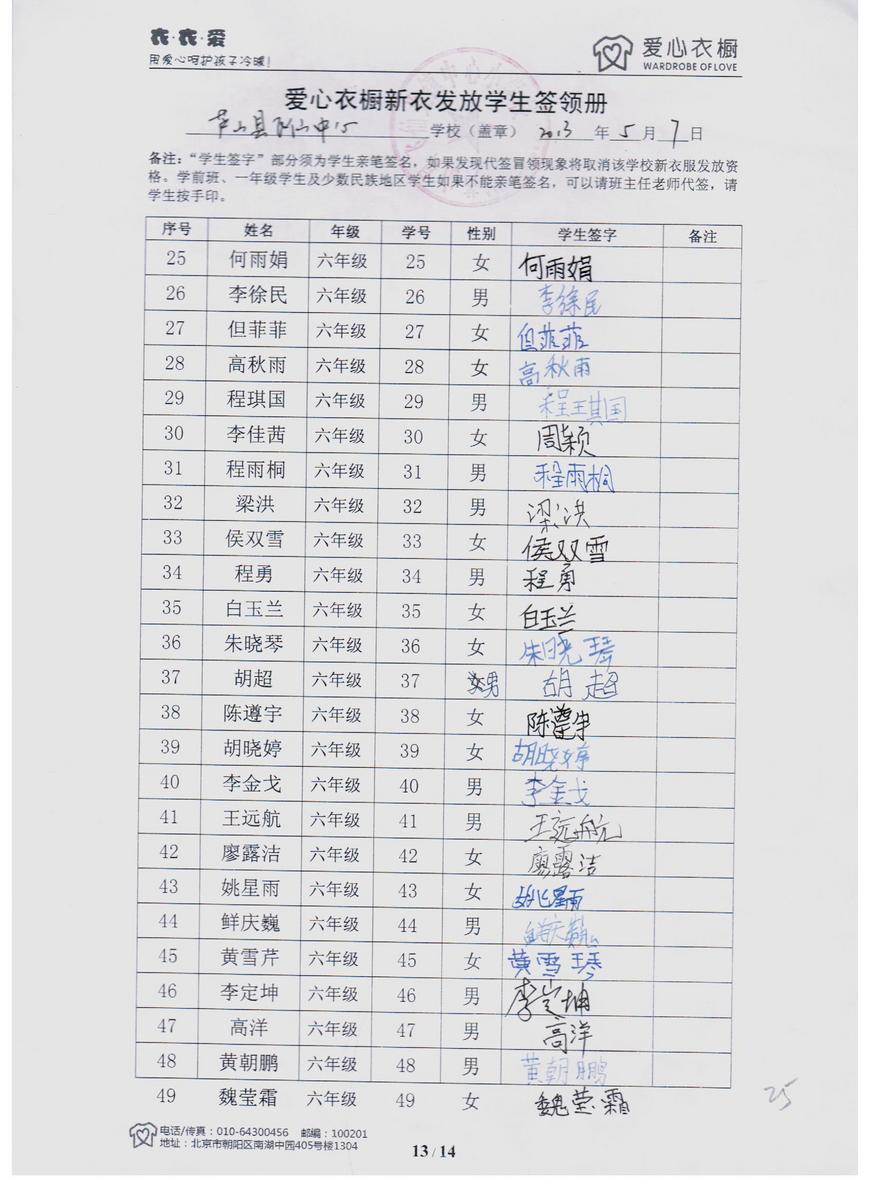 衣·衣·爱
用爱心呵护孩子冷暖!
爱心衣橱
WARDROBE OF LOVE
爱心衣橱新衣发放学生签领册
芦山县 学校（盖章） 2013 年 5 月 7 日
备注：“学生签字”部分须为学生亲笔签名，如果发现代签冒领现象将取消该学校新衣服发放资
格。学前班、一年级学生及少数民族地区学生如果不能亲笔签名，可以请班主任老师代签，请
学生按手印。
序号 姓名 年级 学号 性别 学生签字 备注
25 何雨娟 六年级 25 女 何雨娟
26 李徐民 六年级 26 男 李徐民
27 但菲菲 六年级 27 女 但菲菲
28 高秋雨 六年级 28 女 高秋雨
29 程琪国 六年级 29 男 程琪国
30 李佳茜 六年级 30 女 周颖
31 程雨桐 六年级 31 男 程雨桐
32 梁洪 六年级 32 男 梁洪
33 侯双雪 六年级 33 女 侯双雪
34 程勇 六年级 34 男 程勇
35 白玉兰 六年级 35 女 白玉兰
36 朱晓琴 六年级 36 女 朱晓琴
37 胡超 六年级 37 男 胡超
38 陈遵宇 六年级 38 女 陈遵宇
39 胡晓婷 六年级 39 女 胡晓婷
40 李金戈 六年级 40 男 李金戈
41 王远航 六年级 41 男 王远航
42 廖露洁 六年级 42 女 廖露洁
43 姚星雨 六年级 43 女 姚星雨
44 鲜庆巍 六年级 44 男 鲜庆巍
45 黄雪芹 六年级 45 女 黄雪琴
46 李定坤 六年级 46 男 李定坤
47 高洋 六年级 47 男 高洋
48 黄朝鹏 六年级 48 男 黄朝鹏
49 魏莹霜 六年级 49 女 魏莹霜
25
电话/传真：010-64300456 邮编：100201
地址：北京市朝阳区南湖中园405号楼1304
13 / 14